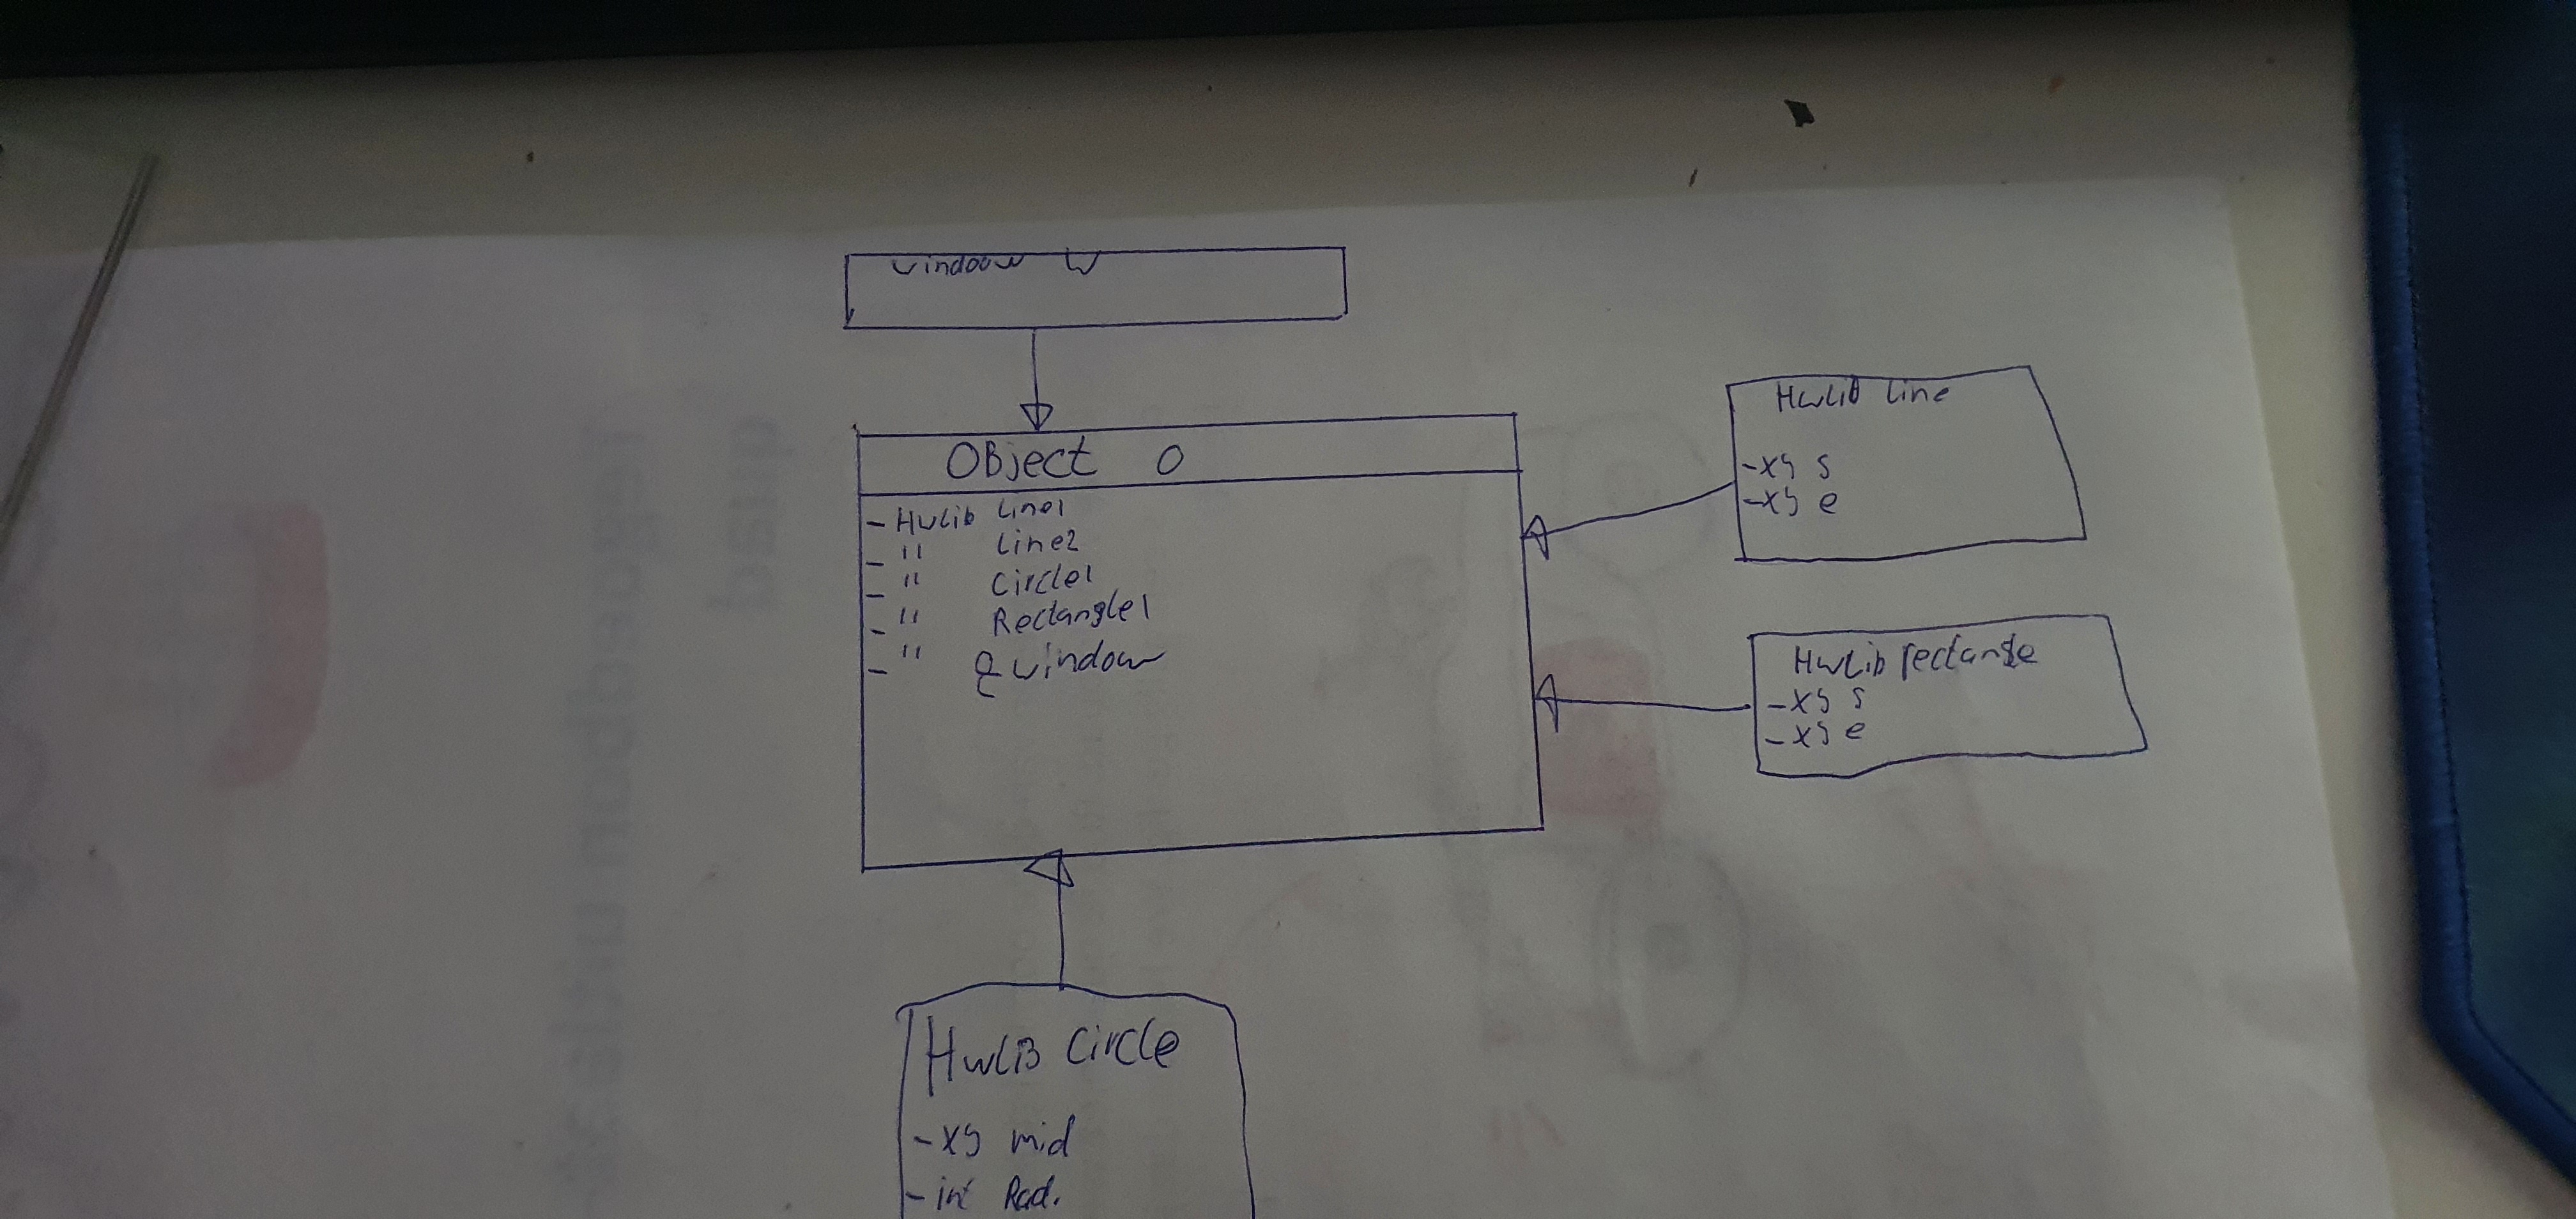 window w
OBject O
- HwLib Line1
- " Line2
- " Circle1
- " Rectangle1
- " & window
HwLiB Line
- xy s
- xy e
HwLib rectangle
- xy s
- xy e
HwLiB Circle
- xy mid
- int Rad.